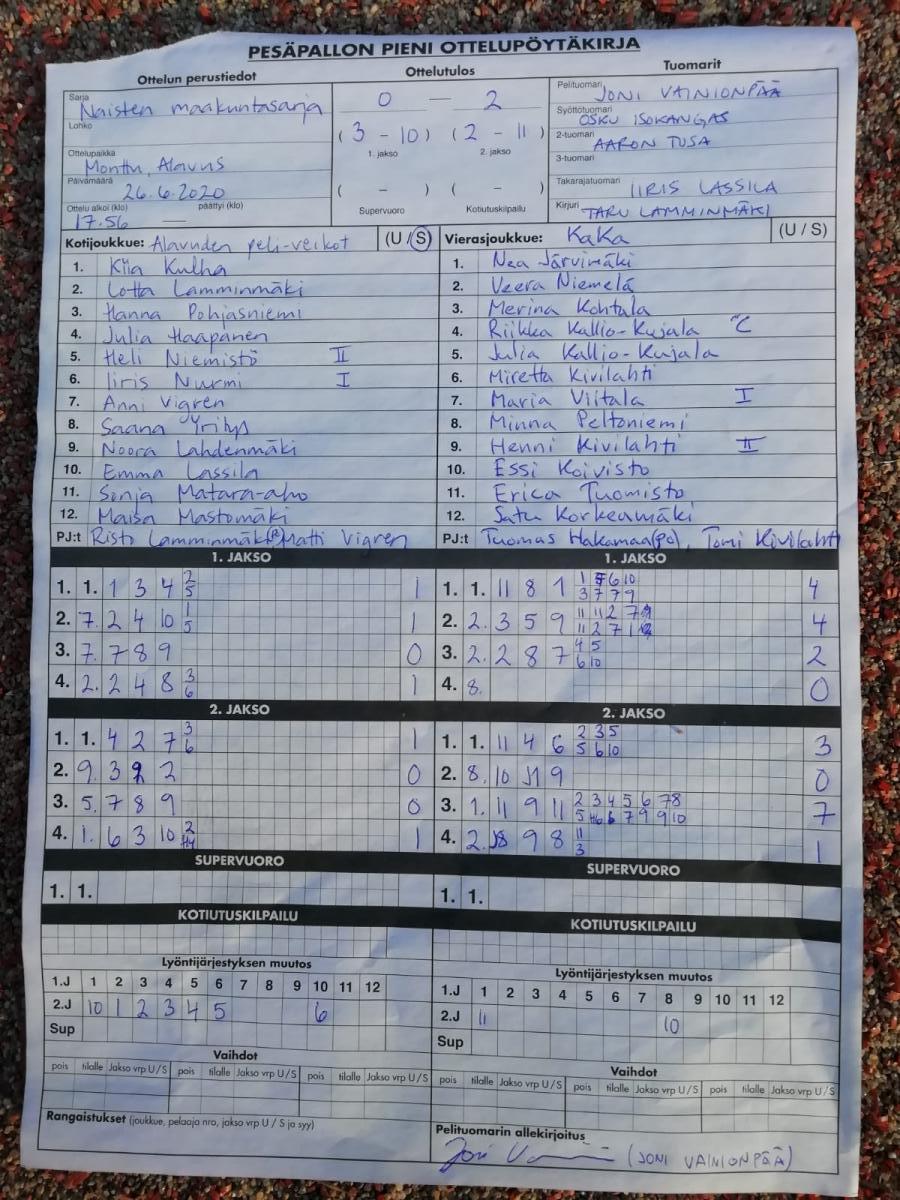 PESÄPALLON PIENI OTTELUPÖYTÄKIRJA
Ottelun perustiedot
Ottelutulos
Tuomarit
Sarja
Naisten maakuntasarja
Lohko
Ottelupaikka
Monttu, Alavus
Päivämäärä
26.6.2020
Ottelu alkoi (klo) päättyi (klo)
17.56 —
0 — 2
(3 - 10) (2 - 11)
1. jakso 2. jakso
( - ) ( - )
Supervuoro Kotiutuskilpailu
Pelituomari
JONI VAINIONPÄÄ
Syöttötuomari
OSKU ISOKANGAS
2-tuomari
AARON TUSA
3-tuomari
Takarajatuomari
IIRIS LASSILA
Kirjuri
TARU LAMMINMÄKI
Kotijoukkue: Alavuden peli-veikot (U / S)
1. Kiia Kulha
2. Lotta Lamminmäki
3. Hanna Pohjasniemi
4. Julia Haapanen
5. Heli Niemistö II
6. Iiris Nurmi I
7. Anni Vigren
8. Saana Yritys
9. Noora Lahdenmäki
10. Emma Lassila
11. Sonja Matara-aho
12. Maisa Mastomäki
PJ:t Risto Lamminmäki Matti Vigren
Vierasjoukkue: KaKa (U / S)
1. Nea Järvimäki
2. Veera Niemelä
3. Merina Kohtala
4. Riikka Kallio-Kujala C
5. Julia Kallio-Kujala
6. Miretta Kivilahti
7. Maria Viitala I
8. Minna Peltoniemi
9. Henni Kivilahti II
10. Essi Koivisto
11. Erica Tuomisto
12. Satu Korkeamäki
PJ:t Tuomas Hakamaa (po), Tomi Kivilahti
1. JAKSO
1. 1. 1 3 4 2 5 1
2. 7. 2 4 10 1 5 1
3. 7. 7 8 9 0
4. 2. 2 4 8 3 6 1
2. JAKSO
1. 1. 4 2 7 3 6 1
2. 9. 3 2 0
3. 5. 7 8 9 0
4. 1. 6 3 10 2 1
SUPERVUORO
1. 1.
KOTIUTUSKILPAILU
Lyöntijärjestyksen muutos
1.J 1 2 3 4 5 6 7 8 9 10 11 12
2.J 10 1 2 3 4 5 6
Sup
Vaihdot
pois tilalle Jakso vrp U/S pois tilalle Jakso vrp U/S pois tilalle Jakso vrp U/S
Rangaistukset (joukkue, pelaaja nro, jakso vrp U / S ja syy)
1. JAKSO
1. 1. 11 8 1 1 6 10 4
3 7 7 9
2. 2. 3 5 9 11 11 2 7 4
11 2 7 1
3. 2. 2 8 7 4 5 2
6 10
4. 8. 0
2. JAKSO
1. 1. 11 4 6 2 3 5 3
5 6 10
2. 8. 10 9 0
3. 1. 11 9 11 2 3 4 5 6 7 8 7
5 6 7 9 9 10
4. 2. 9 8 11 1
3
SUPERVUORO
1. 1.
KOTIUTUSKILPAILU
Lyöntijärjestyksen muutos
1.J 1 2 3 4 5 6 7 8 9 10 11 12
2.J 11 10
Sup
Vaihdot
pois tilalle Jakso vrp U/S pois tilalle Jakso vrp U/S pois tilalle Jakso vrp U/S
Pelituomarin allekirjoitus
(JONI VAINIONPÄÄ)